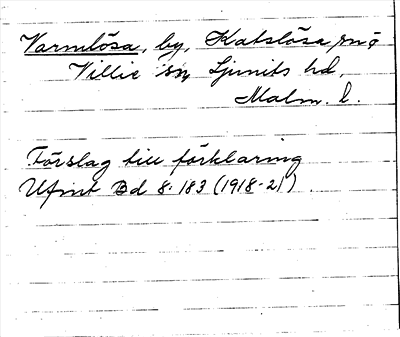 Varmlösa, by, Katslösa sn o
Villie sn, Ljunits hd,
Malm. l.
Förslag till förklaring
Ufint Bd 8: 183 (1918-21).